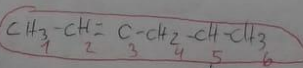 CH3-CH=C-CH2-CH-CH3
1 2 3 4 5 6